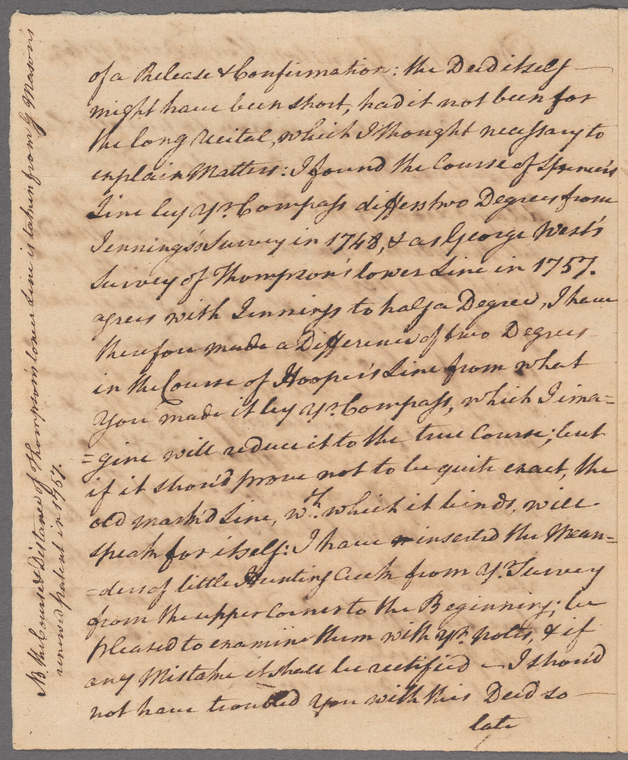 of a Release & Confirmation: the Deed itself
might have been short, had it not been for
the long recital, which I thought necessary to
explain Matters: I found the Course of Spencer's
Line by yr. Compass differs two Degrees from
Jennings's Survey in 1748, & as George West's
Survey of Thompson's lower Line in 1757.
agrees with Jennings to half a Degree, I have
therefore made a Difference of two Degrees
in the Course of Hooper's Line from what
You made it by yr. Compass, which I ima=
=gine will reduce it to the true Course; but
if it shou'd prove not to be quite exact, the
old mark'd Line, wth. which it binds, will
speak for itself: I have inserted the Mean=
=ders of little Hunting Creek from yr. Survey
from the upper Corner to the Beginning; be
pleased to examine them with yr. notes, & if
any Mistake it shall be rectified — I shou'd
not have troubled You with this Deed so
late
NB the Course & Distance of Thompson's lower Line is taken from G Mason's
renewed patent in 1757.